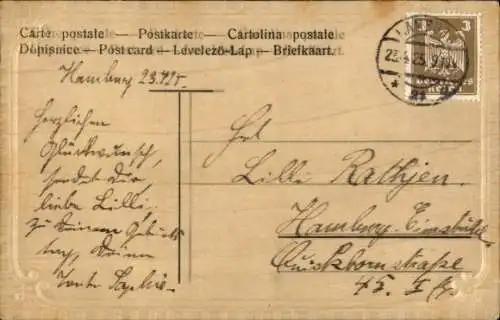 Carte postale — Postkarte — Cartolina postale
Dopisnice — Post card — Levelező-Lap — Briefkaart.
Hamburg 23.4.25.
Herzlichen
Glückwunsch,
sendet Dir,
liebe Lilli,
zu Deinem Geburts
tag, Deine
Tante Sophie.
3
Frl.
Lilli Rathjen.
Hamburg-Eimsbüttel
Quickbornstraße
45. I